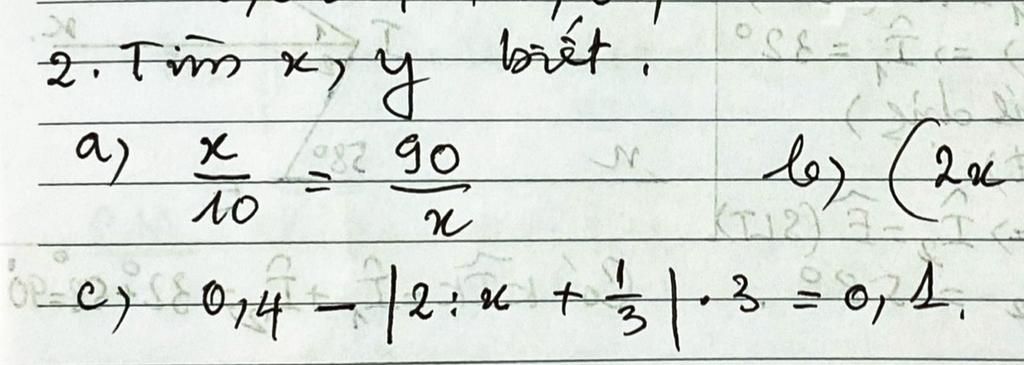 2. Tìm x, y biết.
a) x/10 = 90/x b) (2x
c) 0,4 - |2:x + 1/3| . 3 = 0,1.